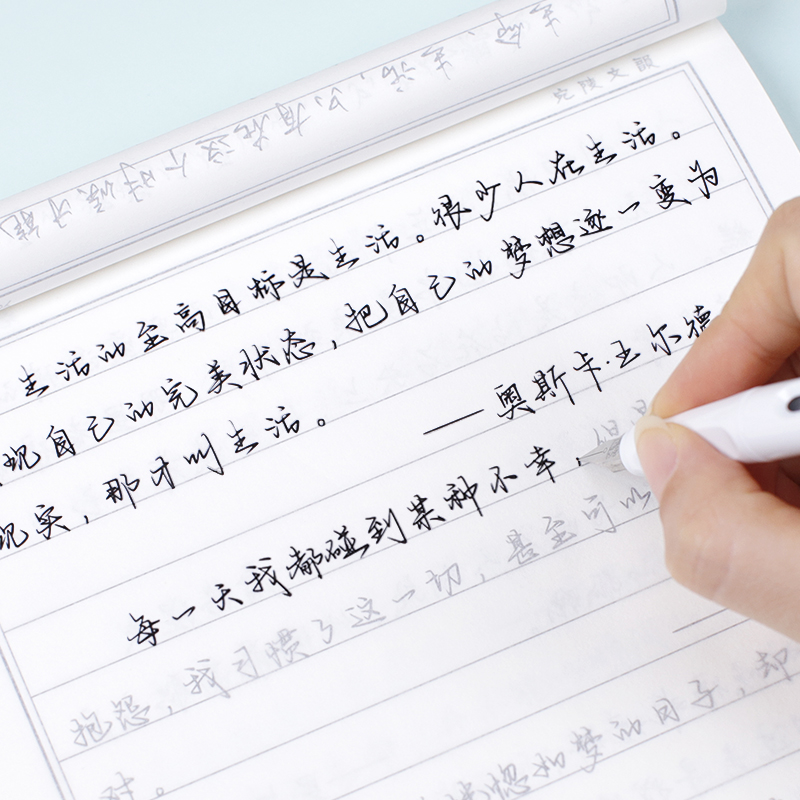 生命,生活,只有在这个时候才能
生活的至高目标是生活。很少人在生活。
现自己的完美状态,把自己的梦想逐一变为
现实,那才叫生活。 ——奥斯卡·王尔德
每一天我都碰到某种不幸,但是
抱怨,我习惯了这一切,甚至可以
对。
恍如梦的日子,却